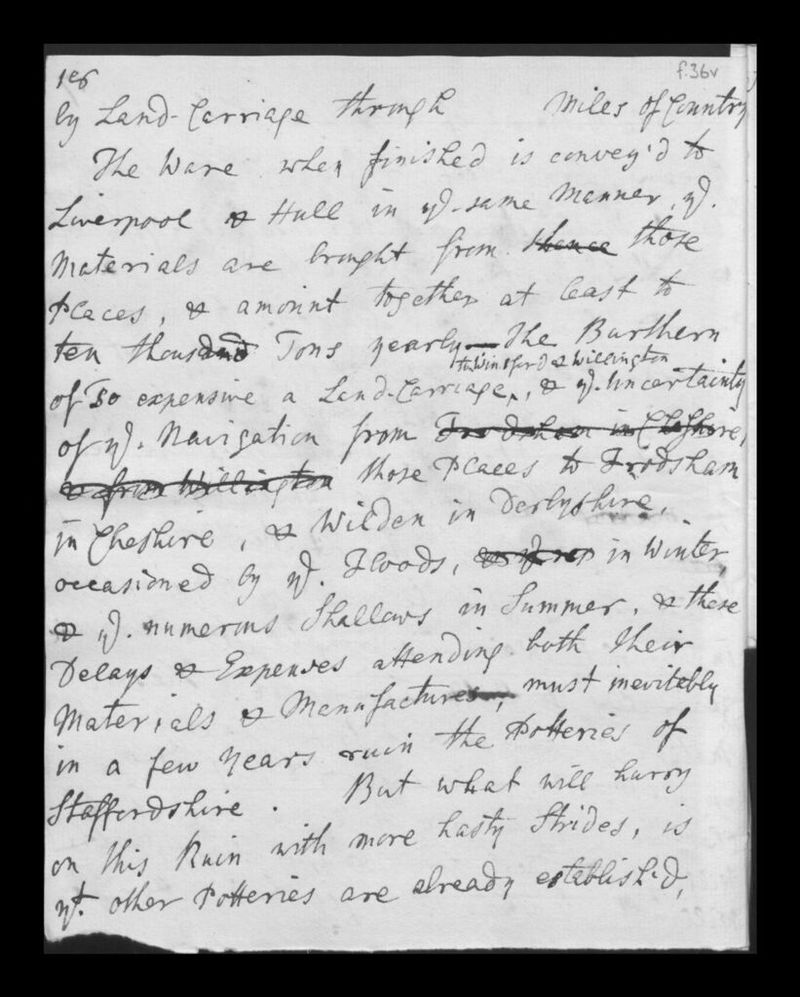 f.36v
by Land-Carriage through Miles of Country
The Ware when finished is convey'd to
Liverpool & Hull in ye. same Manner, ye.
Materials are brought from thence those
Places, & amount together at least to
ten thousand Tons yearly—The Burthern
to Winsford & Willington
of so expensive a Land-Carriage, & ye. Uncertainty
of ye. Navigation from Frodsham in Cheshire,
& from Willington those Places to Frodsham
in Cheshire, & Wilden in Derbyshire,
occasioned by ye. Floods, in Winter,
& ye. numerous Shallows in Summer, & these
Delays & Expenses attending both their
Materials & Manufactures, must inevitebly
in a few Years ruin the Potteries of
Staffordshire. But what will hurry
on this Ruin with more hasty Strides, is
yt. other Potteries are already establish'd,